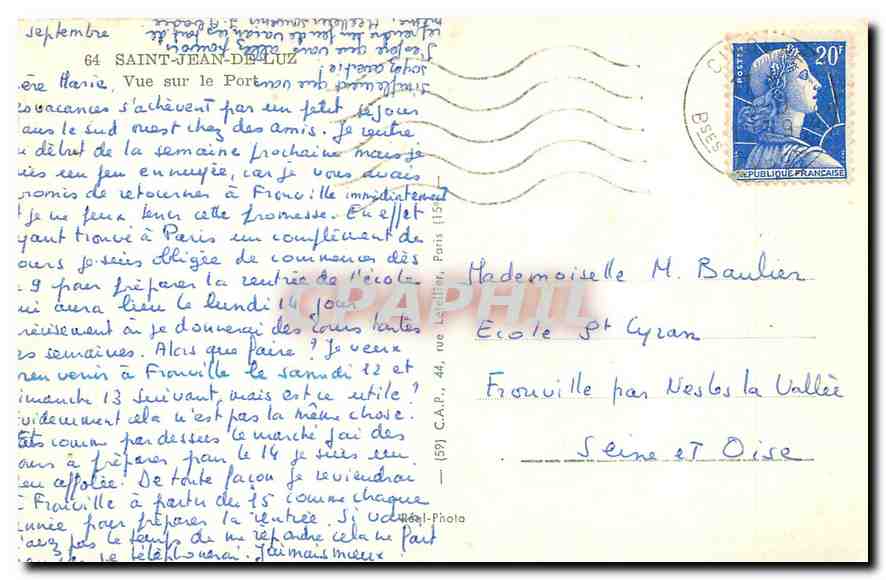 septembre
64 SAINT-JEAN-DE-LUZ
Vue sur le Port
ère Maria,
vacances s'achèvent par un petit séjour
ans le sud ouest chez des amis. Je rentre
u début de la semaine prochaine mais je
uis un peu ennuyée, car je vous avais
romis de retourner à Frouville immédiatement
t je ne peux tenir cette promesse. En effet
yant trouvé à Paris un complément de
ours je suis obligée de commencer dès
9 pour préparer la rentrée de l'école
ui aura lieu le lundi 14 jour
récisément où je donnerai des cours toutes
es semaines. Alors que faire ? Je veux
en venir à Frouville le samedi 12 et
imanche 13 suivant, mais est ce utile ?
videmment cela n'est pas la même chose.
comme par dessus le marché j'ai des
ours à préparer pour le 14 je suis un
eu affolée. De toute façon je reviendrai
à Frouville à partir du 15 comme chaque
année pour préparer la rentrée. Si vous
avez pas le temps de me répondre cela ne fait
je téléphonerai. J'aimais mieux
simplement que vous
soyez avertie.
J'espère que vous allez pouvoir
prendre un peu de vacances tout de
même. Meilleur souvenir à
Réal-Photo
(59) C.A.P., 44, rue Letellier, Paris (15e)
CPAPHIL
POSTES
20F
REPUBLIQUE FRANCAISE
Bses
Mademoiselle M. Baulier
Ecole St Cyran
Frouville par Nesles la Vallée
Seine et Oise